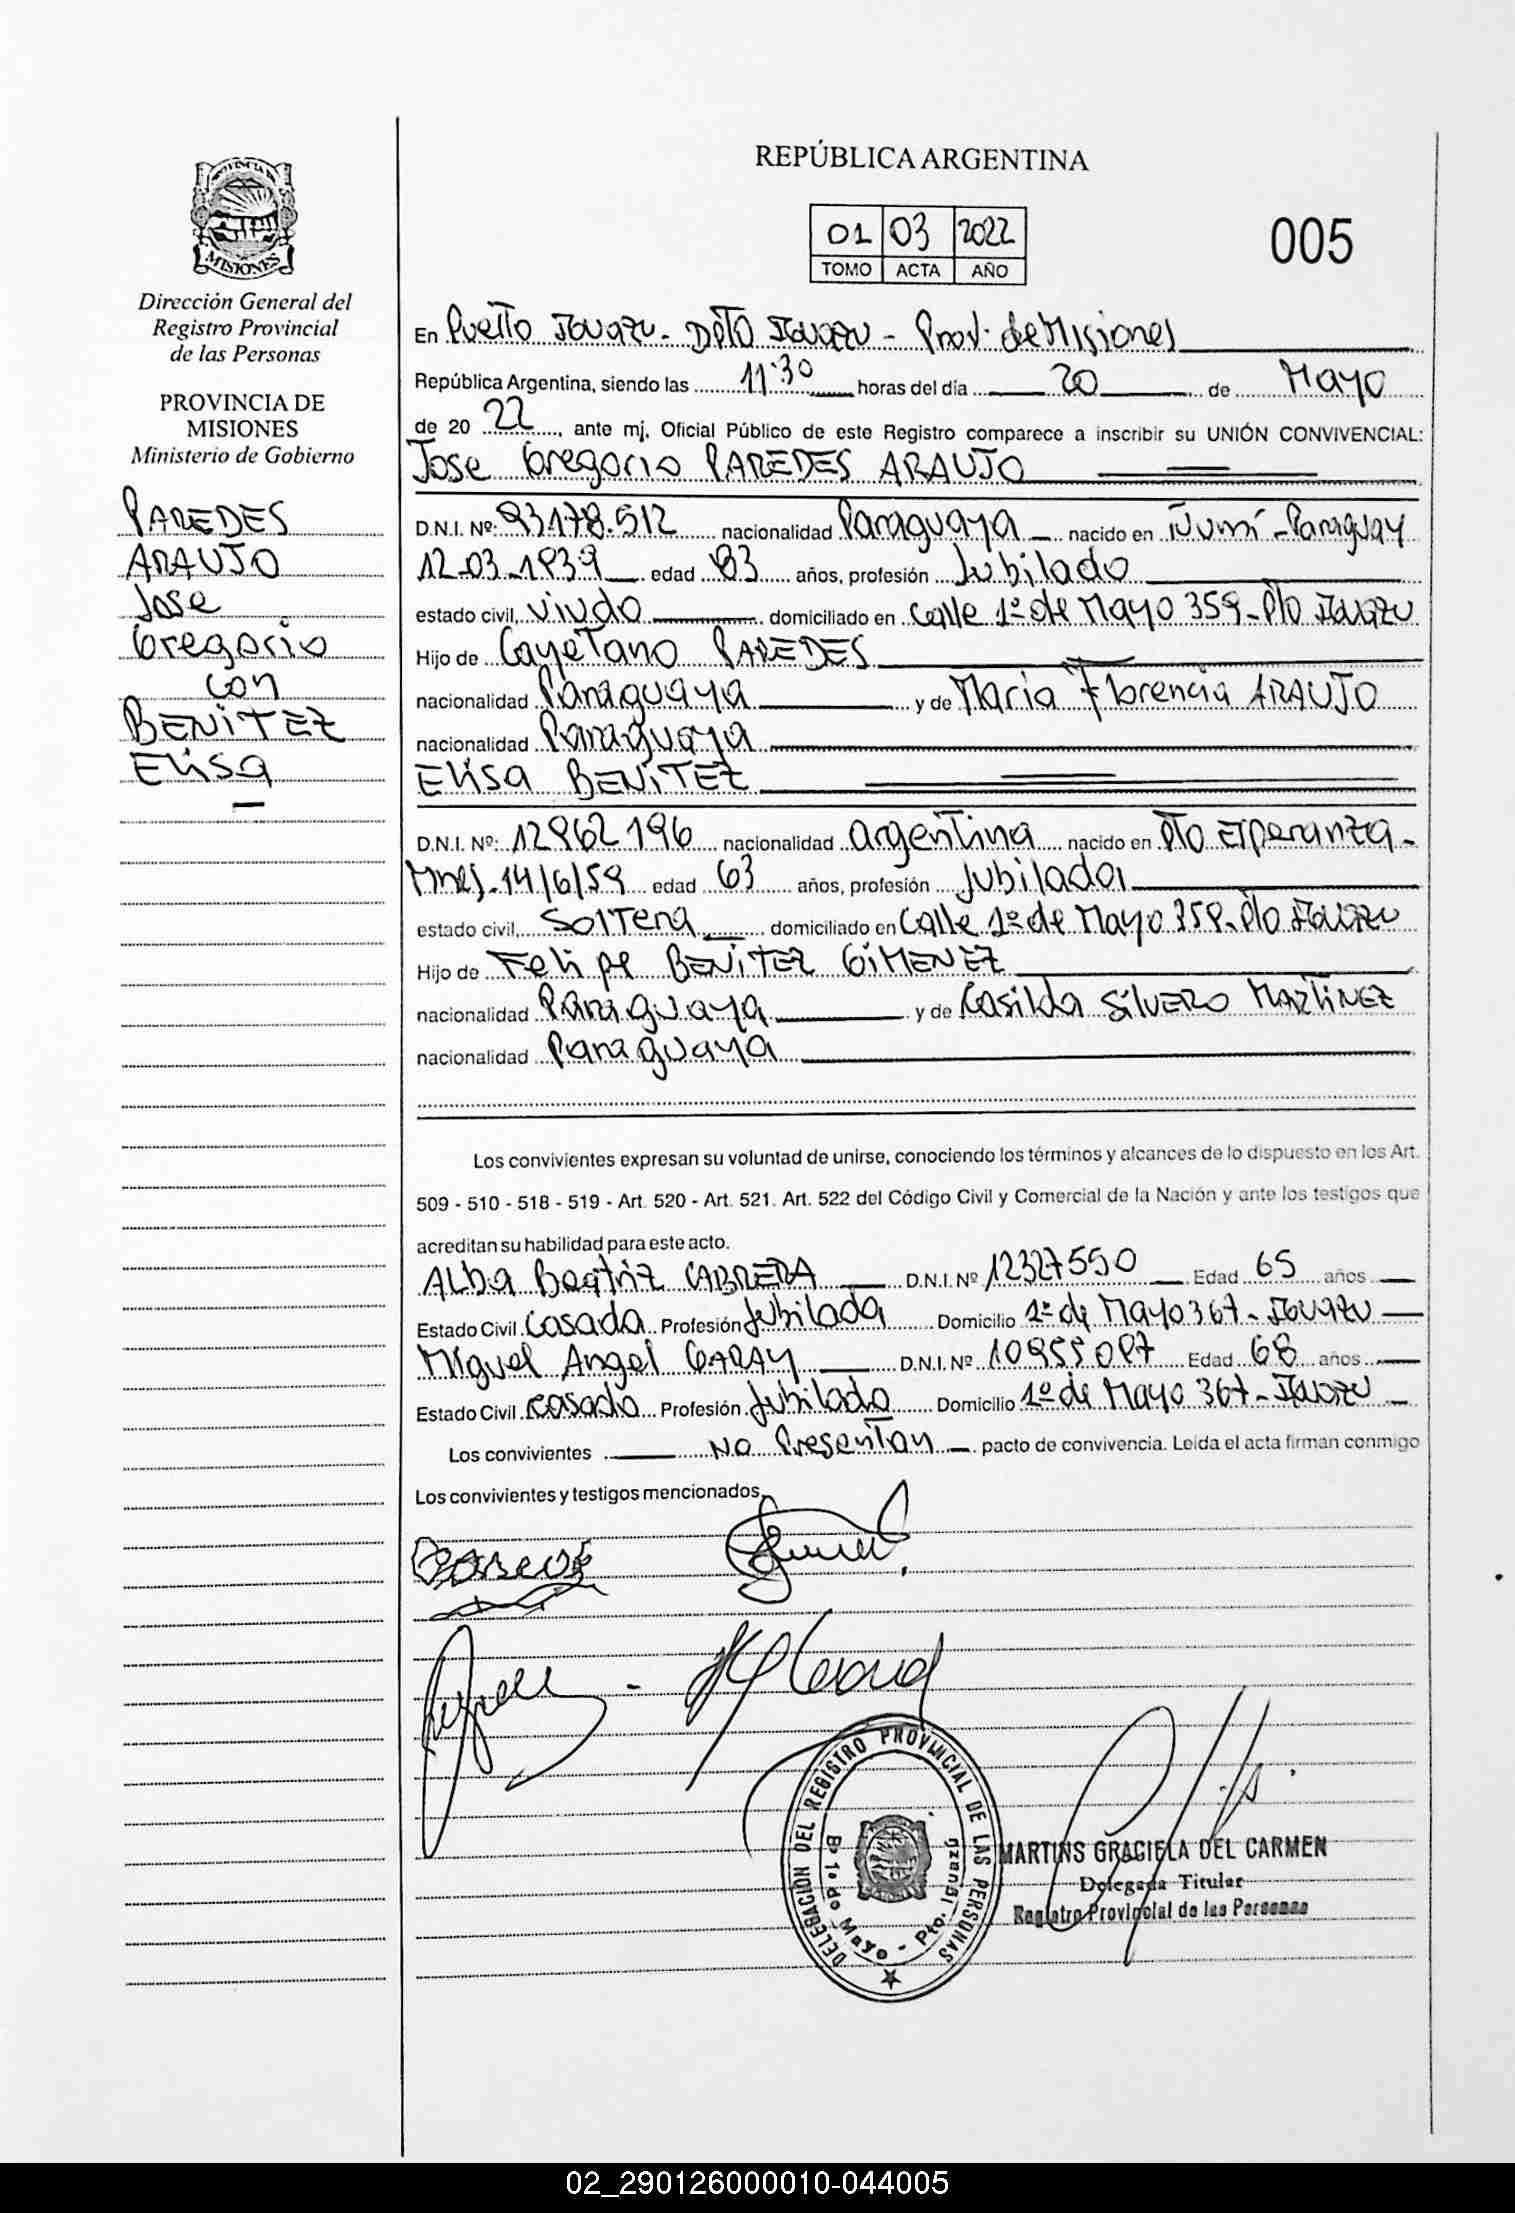 REPÚBLICA ARGENTINA
01 03 2022
TOMO ACTA AÑO
005
PROVINCIA DE
MISIONES
Dirección General del
Registro Provincial
de las Personas
PROVINCIA DE
MISIONES
Ministerio de Gobierno
PAREDES
ARAUJO
Jose
Gregorio
con
BENITEZ
Elisa
En Puerto Iguazu - Dpto Iguazu - Prov. de Misiones
República Argentina, siendo las 11:30 horas del día 20 de Mayo
de 20 22, ante mj, Oficial Público de este Registro comparece a inscribir su UNIÓN CONVIVENCIAL:
Jose Gregorio PAREDES ARAUJO
D.N.I. Nº: 93178.512 nacionalidad Paraguaya nacido en Ñumí - Paraguay
12-03-1939 edad 83 años, profesión Jubilado
estado civil, Viudo domiciliado en Calle 1º de Mayo 359 - Pto Iguazu
Hijo de Cayetano PAREDES
nacionalidad Paraguaya y de Maria Florencia ARAUJO
nacionalidad Paraguaya
Elisa BENITEZ
D.N.I. Nº: 12962196 nacionalidad Argentina nacido en Pto Esperanza -
Mnes - 14/6/59 edad 63 años, profesión Jubilada
estado civil, Soltera domiciliado en Calle 1º de Mayo 359 - Pto Iguazu
Hijo de Felipe BENITEZ GIMENEZ
nacionalidad Paraguaya y de Casilda SilVERO MARTINEZ
nacionalidad Paraguaya
Los convivientes expresan su voluntad de unirse, conociendo los términos y alcances de lo dispuesto en los Art.
509 - 510 - 518 - 519 - Art. 520 - Art. 521. Art. 522 del Código Civil y Comercial de la Nación y ante los testigos que
acreditan su habilidad para este acto.
Alba Beatriz CABRERA D.N.I. Nº 12327550 Edad 65 años
Estado Civil Casada Profesión Jubilada Domicilio 1º de Mayo 367 - Iguazu
Miguel Angel GARAY D.N.I. Nº 10955097 Edad 68 años
Estado Civil Casado Profesión Jubilado Domicilio 1º de Mayo 367 - Iguazu
Los convivientes No Presentan pacto de convivencia. Leída el acta firman conmigo
Los convivientes y testigos mencionados.
DELEGACION DEL REGISTRO PROVINCIAL DE LAS PERSONAS
Bº 1º de Mayo - Pto. Iguazú
MARTINS GRACIELA DEL CARMEN
Delegada Titular
Registro Provincial de las Personas
02_290126000010-044005